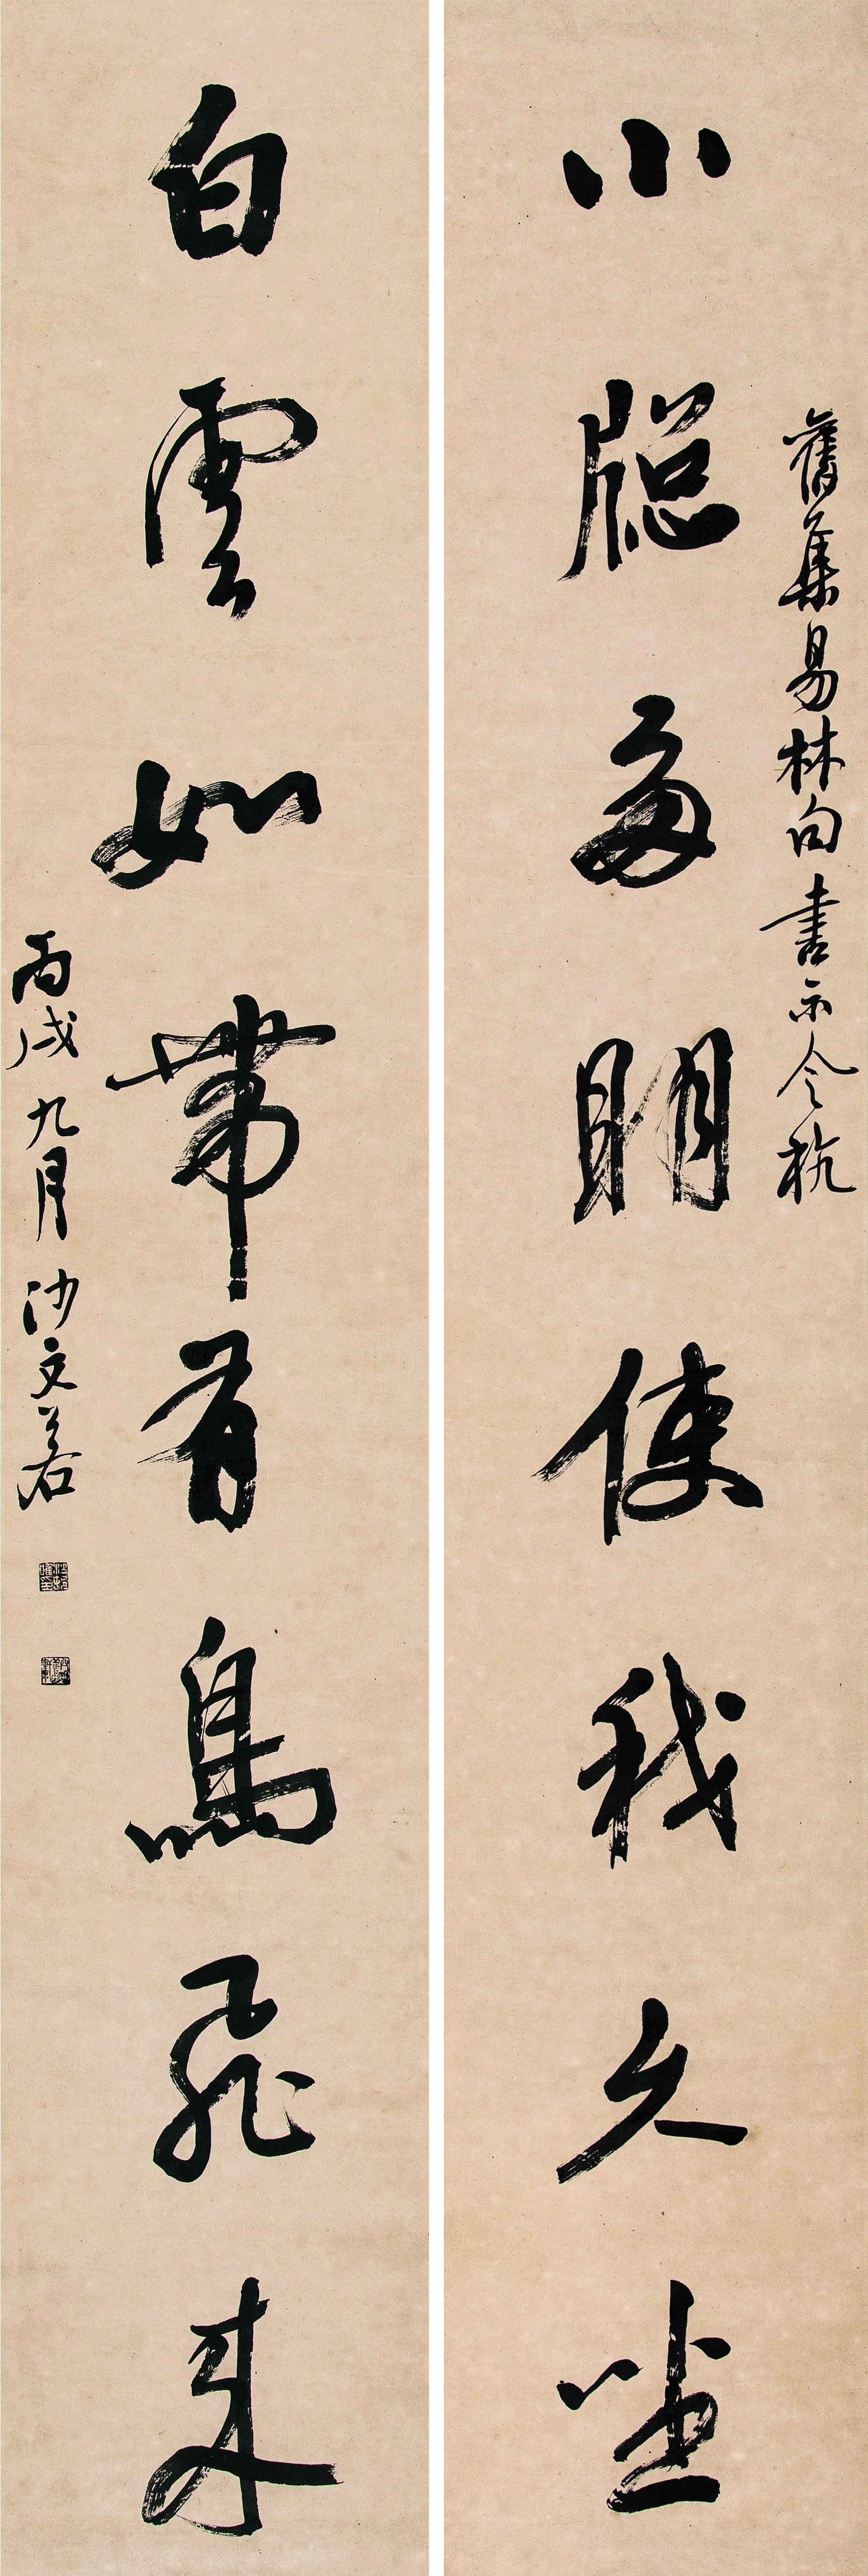 舊集易林句書示令杭
小牕多明使我久坐
白雲如帶有鳥飛來
丙戌九月沙文若